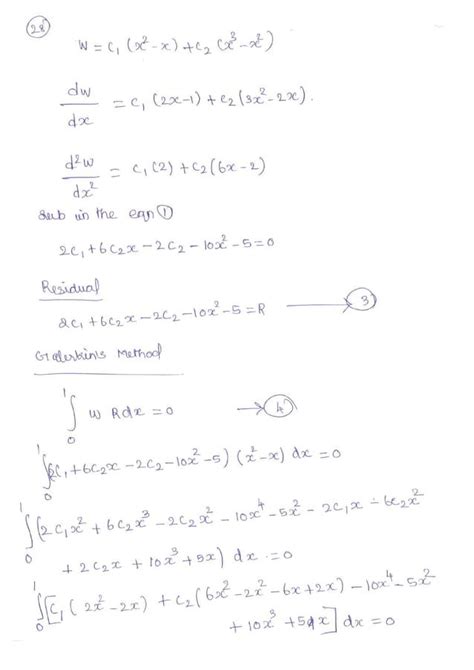 28
W = C₁ (x² - x) + C₂ (x³ - x²)
dw/dx = C₁ (2x-1) + C₂ (3x² - 2x).
d²w/dx² = C₁ (2) + C₂ (6x - 2)
Sub in the eqn ①
2C₁ + 6C₂x - 2C₂ - 10x² - 5 = 0
Residual
2C₁ + 6C₂x - 2C₂ - 10x² - 5 = R → ③
Galerkin's Method
∫₀¹ w R dx = 0 → ④
∫₀¹ (2C₁ + 6C₂x - 2C₂ - 10x² - 5) (x² - x) dx = 0
∫₀¹ (2C₁x² + 6C₂x³ - 2C₂x² - 10x⁴ - 5x² - 2C₁x - 6C₂x²
+ 2C₂x + 10x³ + 5x) dx = 0
∫₀¹ [C₁ (2x² - 2x) + C₂ (6x² - 2x² - 6x + 2x) - 10x⁴ - 5x²
+ 10x³ + 5x] dx = 0